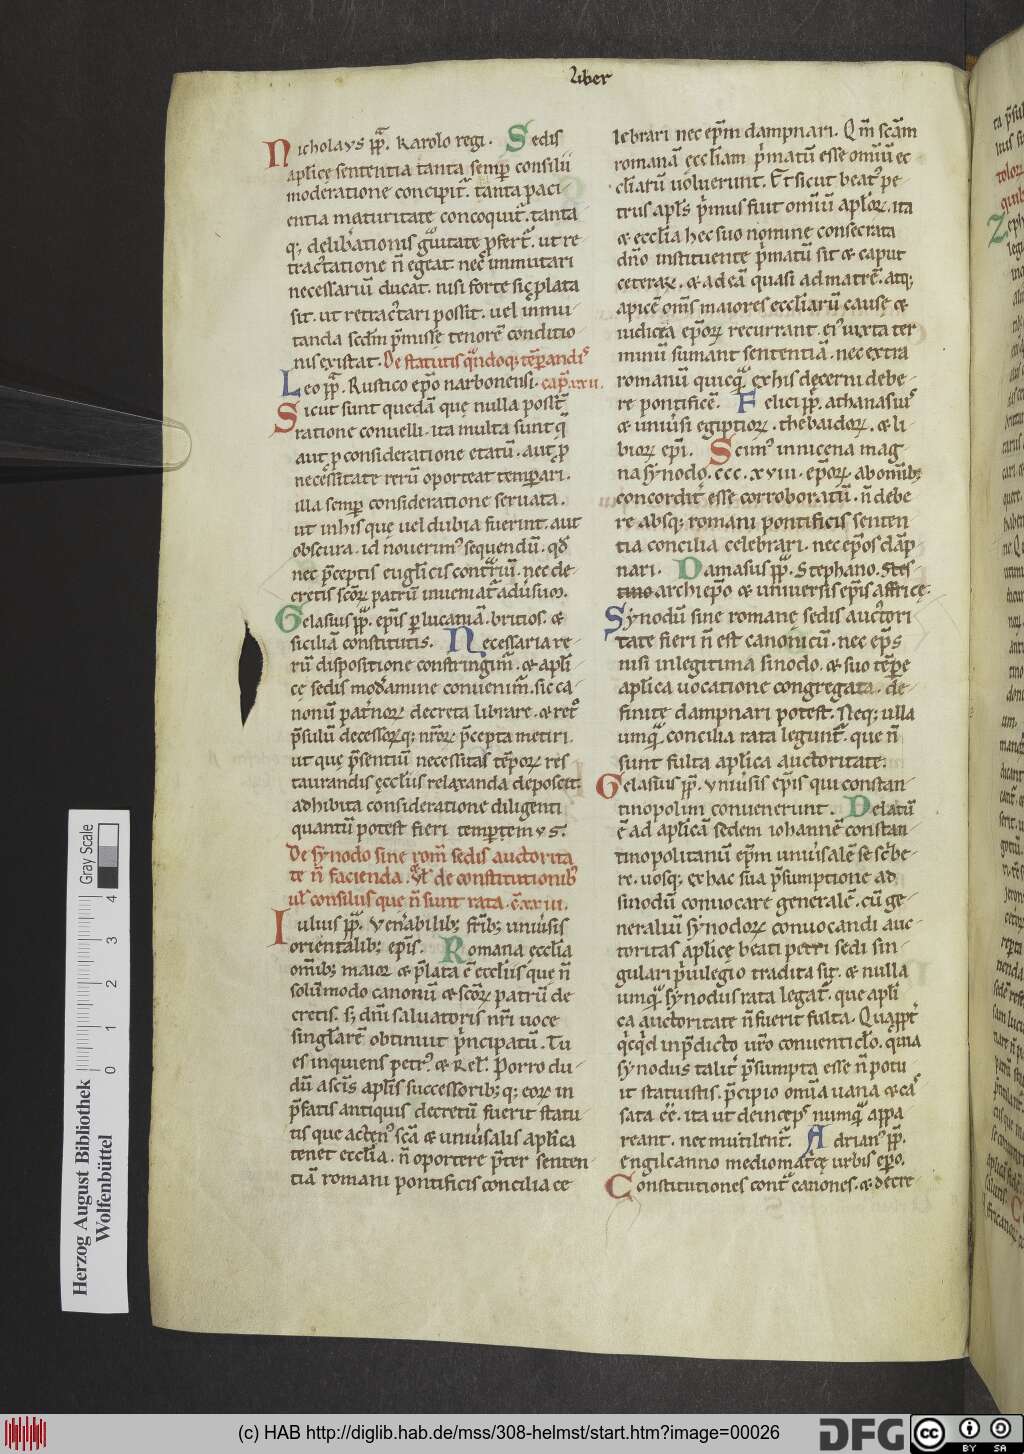 Liber
Nicholaus pp̄. karolo regi. Sedis
aplīcę sententia tanta semp̱ consilii
moderatione concipit̄. tanta paci
entia maturitate concoquit̄. tanta
q; delib̄ationis ḡuitate p̱fert̄. ut re
tractatione n̄ egeat. nec immutari
necessariū ducat. nisi forte sic p̱lata
sit. ut retractari possit. uel inmu
tanda scdm̄ p̄missę tenorē conditio
nis existat. De statutis q̄ndoq; tēp̱andis
Leo pp̄. Rustico ep̄o narbonensi. cap̄.xxii.
Sicut sunt quedā que nulla post̄
ratione conuelli. ita multa sunt q̄
aut p̱ consideratione etatū. aut p̱
necessitate rerū oporteat temp̱ari.
illa semp̱ consideratione seruata.
ut in his que uel dubia fuerint. aut
obscura. id nouerim᷒ sequendū. qđ
nec p̄ceptis euglīcis cont̄riū. nec de
cretis scōꝝ patrū inueniat̄ aduersum.
Gelasius pp̄. ep̄is p̱ lucaniā. britios. &
siciliā constitutis. Necessaria re
rū dispositione constringim̄. & aplī
cę sedis mod̄amine conuenim̄. sic ca
nonū pat̄noꝝ decreta librare. & ret͛
p̄sulū decessoꝝq; nr̄oꝝ p̄cepta metiri.
ut que p̄sentiū necessitas tēpoꝝ res
taurandis ęccliis relaxanda deposcit.
adhibita consideratione diligenti
quantū potest fieri temp̱emus.
De synodo sine rom̄ sedis auctorita
te n̄ facienda. ul̄ de constitutionib᷒
ul̄ consiliis que n̄ sunt rata. c̄.xxiii.
Iulius pp̄. ven̄abilib; fr̄ib; uniūsis
orientalib; ep̄is. Romana ęcclia
om̄ib; maior & p̄lata ē ęccliis que n̄
solūmodo canonū & scōꝝ patrū de
cretis. s; dn̄i saluatoris nr̄i uoce
singlarē obtinuit p̄ncipatū. Tu
es inquiens petr᷒. & rel̄. Porro du
dū a scīs aplīs successorib; q; eoꝝ in
p̄fatis antiquis decretū fuerit statu
tis que acten᷒ scā & uniūsalis aplīca
tenet ęcclia. n̄ oportere p̄ter senten
tiā romani pontificis concilia ce
lebrari nec ep̄m dampnari. Qm̄ scām
romanā ęccliam p̄matū esse omiū ec
cliarū uoluerunt. Et sicut beat᷒ pe
trus apls̄ p̄mus fuit omiū aplōꝝ. ita
& ecclia hec suo nomine consecrata
dn̄o instituente p̄matū sit & caput
ceteraꝝ. & ad eā quasi ad matrē. atq;
apicē om̄s maiores eccliarū cause &
iudicia ep̄oꝝ recurrant. ei᷒ iuxta ter
minū sumant sententiā. nec extra
romanū quicq̄ ex his decerni debe
re pontificē. Felici pp̄. athanasius
& uniūsi egiptioꝝ. thebaidoꝝ. & li
bioꝝ ep̄i. Scim᷒ in nicena mag
na synodo. ccc.xviii. ep̄oꝝ ab omib;
concordit͛ esse corroboratū. n̄ debe
re absq; romani pontificis senten
tia concilia celebrari. nec ep̄os dāp
nari. Damasus pp̄. Stephano. Stes
tino archiep̄o & uniuersis ep̄is affricę.
Synodū sine romanę sedis auctori
tate fieri n̄ est canonicū. nec ep̄s
nisi in legitima sinodo. & suo tēpe
aplīca uocatione congregata. de
finite dampnari potest. Neq; ulla
umq̄ concilia rata legunt̄. que n̄
sunt fulta aplīca auctoritate.
Gelasius pp̄. uniūsis ep̄is qui constan
tinopolim conuenerunt. Delatū
ē ad aplīcā sedem iohannē constan
tinopolitanū ep̄m uniūsalē se scribe
re. uosq; ex hac sua p̄sumptione ad
sinodū conuocare generalē. cū ge
neraliū synodoꝝ conuocandi auc
toritas aplīcę beati petri sedi sin
gulari p̄uilegio tradita sit. & nulla
umq̄ synodus rata legat̄. que aplī
ca auctoritate n̄ fuerit fulta. Quapp̱t͛
q̄cq̄d in p̄dicto ur̄o conuenticlo. quia
synodus talit͛ p̄sumpta esse n̄ potu
it statuistis. p̄cipio omia uana & cas
sata eē. ita ut deinceps numq̄ appa
reant. nec mutilent̄. Adrian᷒ pp̄.
engilranno mediomat̄cę urbis ep̄o.
Constitutiones cont͛ canones. & decre
Gray Scale
0 1 2 3 4
Herzog August Bibliothek
Wolfenbüttel
(c) HAB http://diglib.hab.de/mss/308-helmst/start.htm?image=00026
DFG
cc BY SA